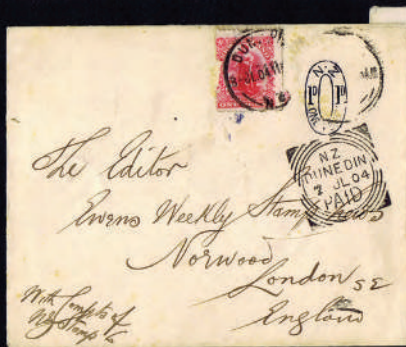 DUN
04
N.Z
ONE
N.Z
1D 1D
NZ
DUNEDIN
2 JL 04
PAID
The Editor
Ewens Weekly Stamp News
Norwood
London S E
England
With Compts of
NZ Stamp Co